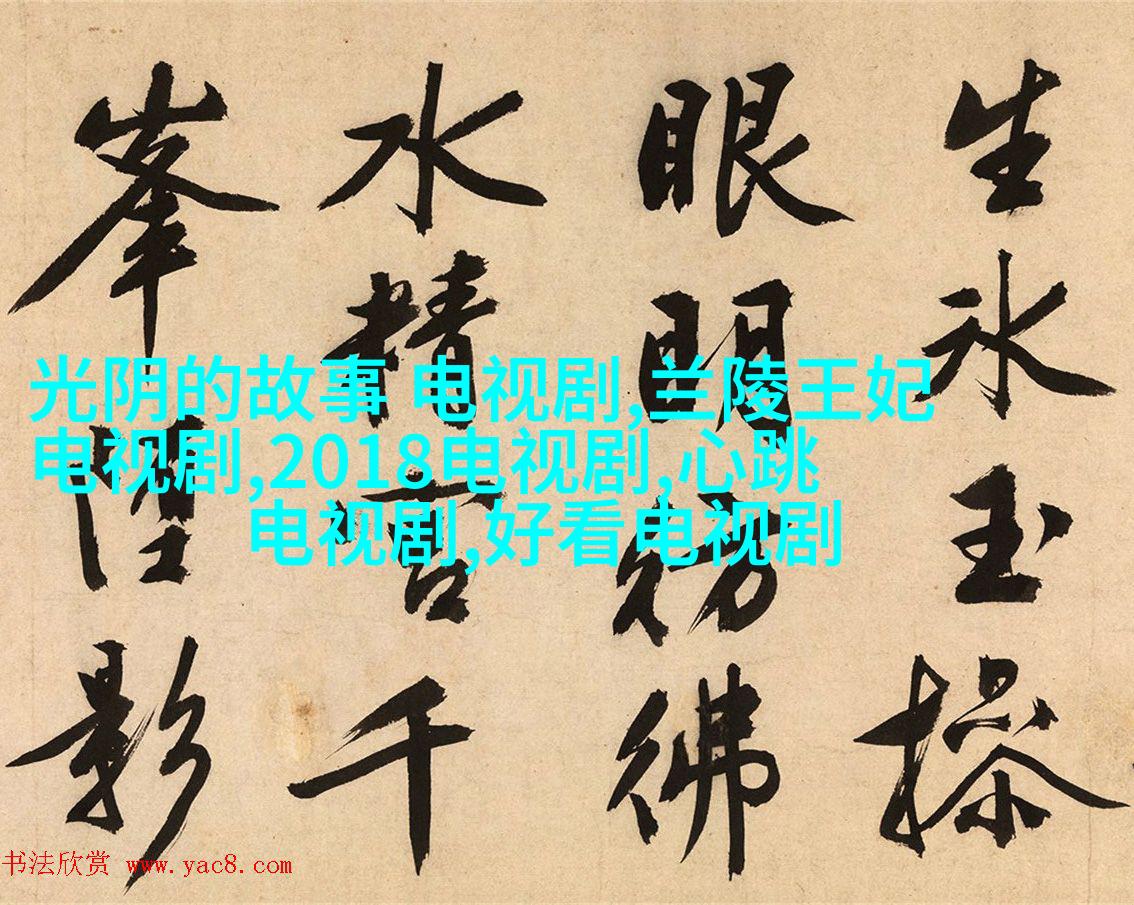 生冰玉操
眼明彷彿
水精宫千
峯堕影
光阴的故事 电视剧,兰陵王妃
电视剧,2018电视剧,心跳
电视剧,好看电视剧
书法欣赏 www.yac8.com